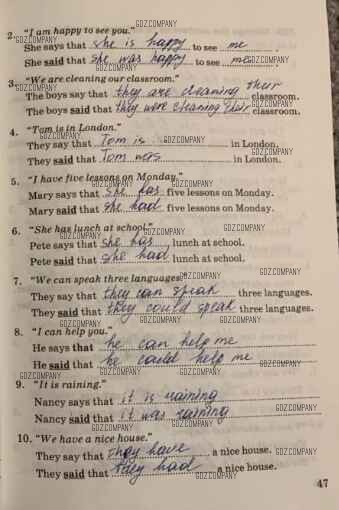 GDZCOMPANY
2. "I am happy to see you."
She says that she is happy to see me
She said that she was happy to see me
GDZCOMPANY GDZCOMPANY
3. "We are cleaning our classroom."
The boys say that they are cleaning their classroom.
GDZCOMPANY GDZCOMPANY
The boys said that they were cleaning their classroom.
4. "Tom is in London."
GDZCOMPANY GDZCOMPANY
They say that Tom is in London.
They said that Tom was in London.
GDZCOMPANY
5. "I have five lessons on Monday."
GDZCOMPANY GDZCOMPANY
Mary says that she has five lessons on Monday.
Mary said that she had five lessons on Monday.
6. "She has lunch at school."
GDZCOMPANY GDZCOMPANY GDZCOMPANY
Pete says that she has lunch at school.
Pete said that she had lunch at school.
7. "We can speak three languages."
GDZCOMPANY GDZCOMPANY
They say that they can speak three languages.
They said that they could speak three languages.
GDZCOMPANY GDZCOMPANY GDZCOMPANY
8. "I can help you."
He says that he can help me
He said that he could help me
GDZCOMPANY GDZCOMPANY GDZCOMPANY
9. "It is raining."
Nancy says that it is raining
GDZCOMPANY
Nancy said that it was raining
GDZCOMPANY
10. "We have a nice house."
They say that they have a nice house.
GDZCOMPANY
They said that they had a nice house.
GDZCOMPANY
47